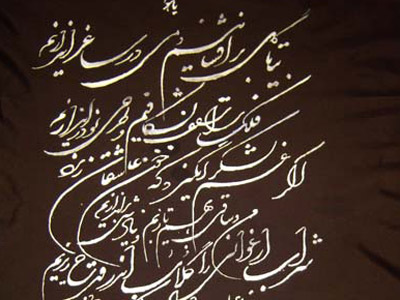 یا هو
بیا تا گل برافشانیم و می در ساغر اندازیم
فلک را سقف بشکافیم و طرحی نو در اندازیم
اگر غم لشکر انگیزد که خون عاشقان ریزد
من و ساقی بهم تازیم و بنیادش براندازیم
شراب ارغوانی را گلاب اندر قدح ریزیم